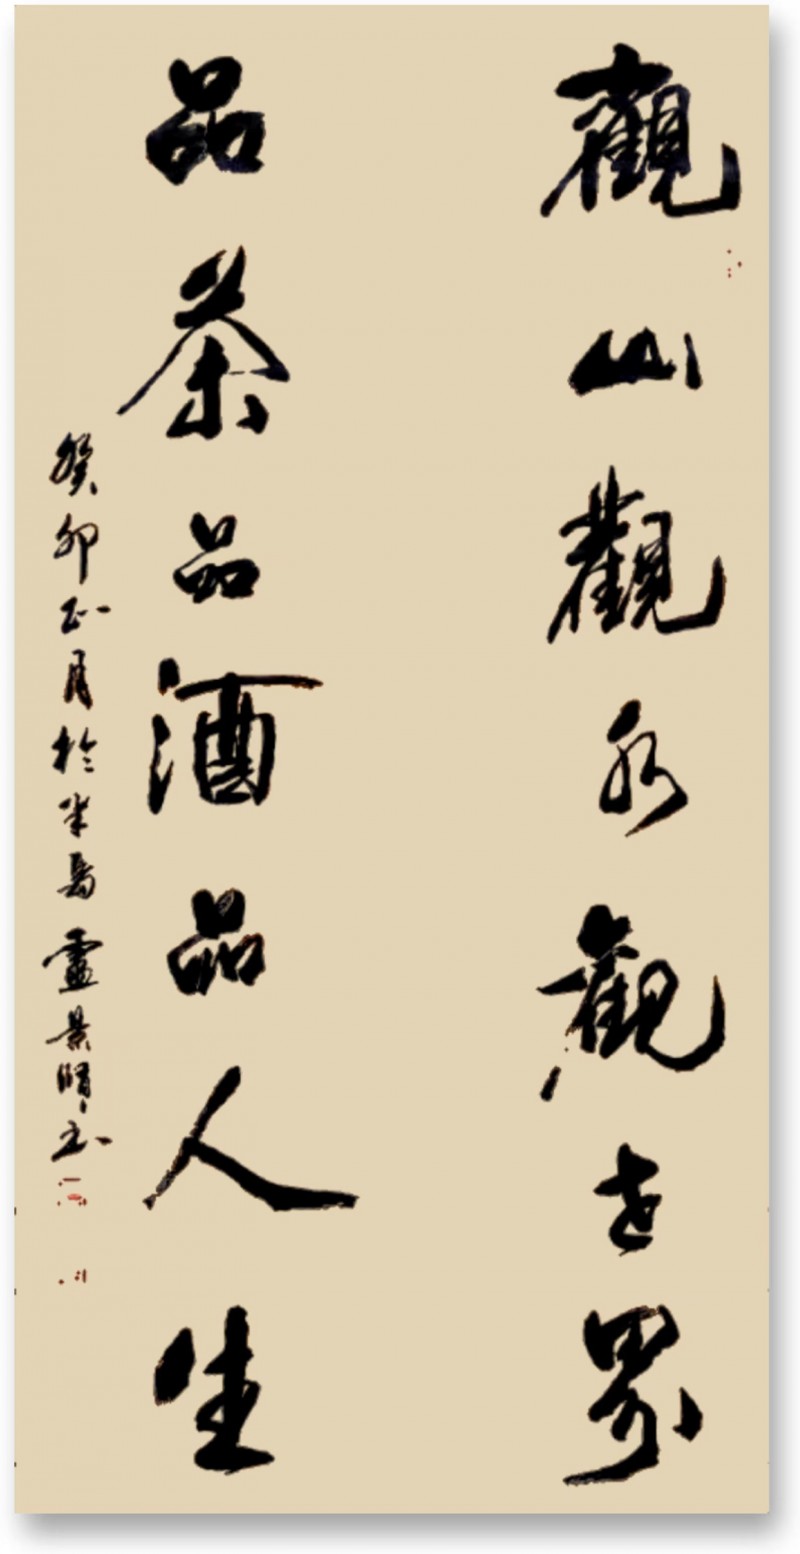 觀山觀水觀世界
品茶品酒品人生
癸卯正月於半島盧景賢書